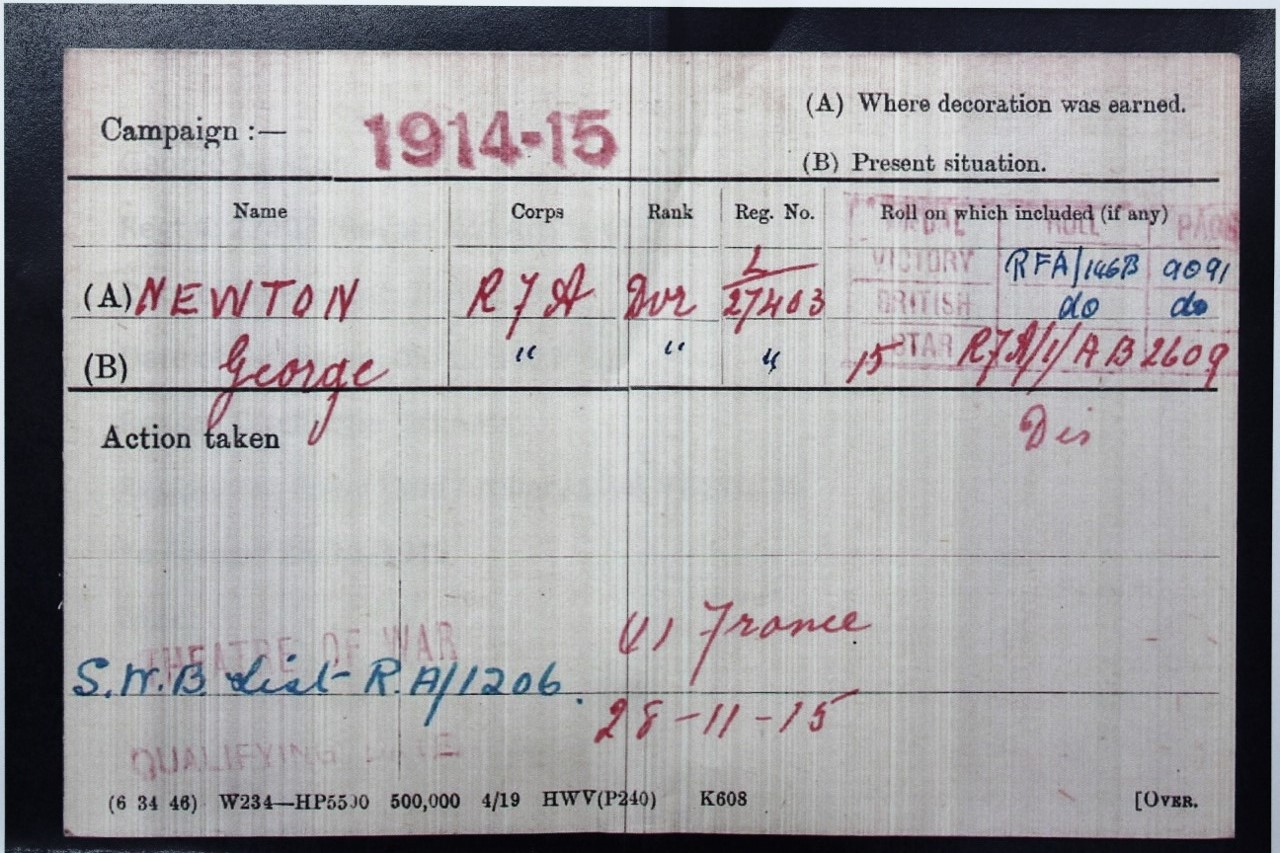 Campaign :— 1914-15
(A) Where decoration was earned.
(B) Present situation.
Name Corps Rank Reg. No. Roll on which included (if any)
MEDAL ROLL PAGE
VICTORY RFA/146B 9091
(A) NEWTON R F A Dvr L/27403 BRITISH do do
(B) George " " " 15 STAR RFA/1/AB 2609
Action taken Dis
THEATRE OF WAR (1) France
S.W.B List R.A/1206.
QUALIFYING DATE 28-11-15
(6 34 46) W234—HP5500 500,000 4/19 HWV(P240) K608 [OVER.